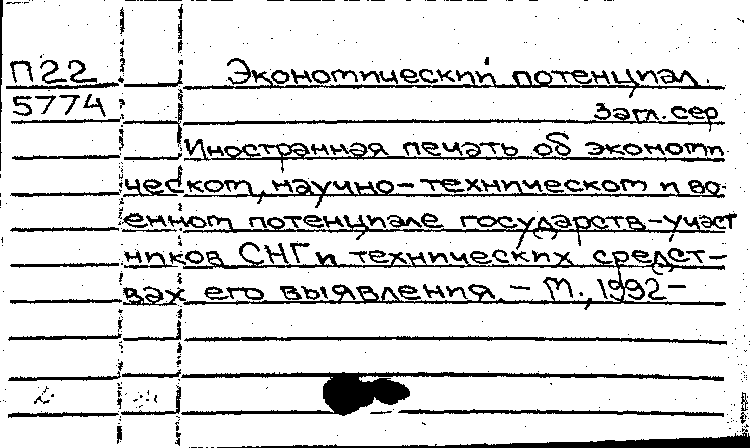 П22 Экономический потенциал.
5774 Загл. сер
Иностранная печать об экономи
ческом, научно-техническом и во
енном потенциале государств-участ
ников СНГ и технических средст-
вах его выявления. - М., 1992-